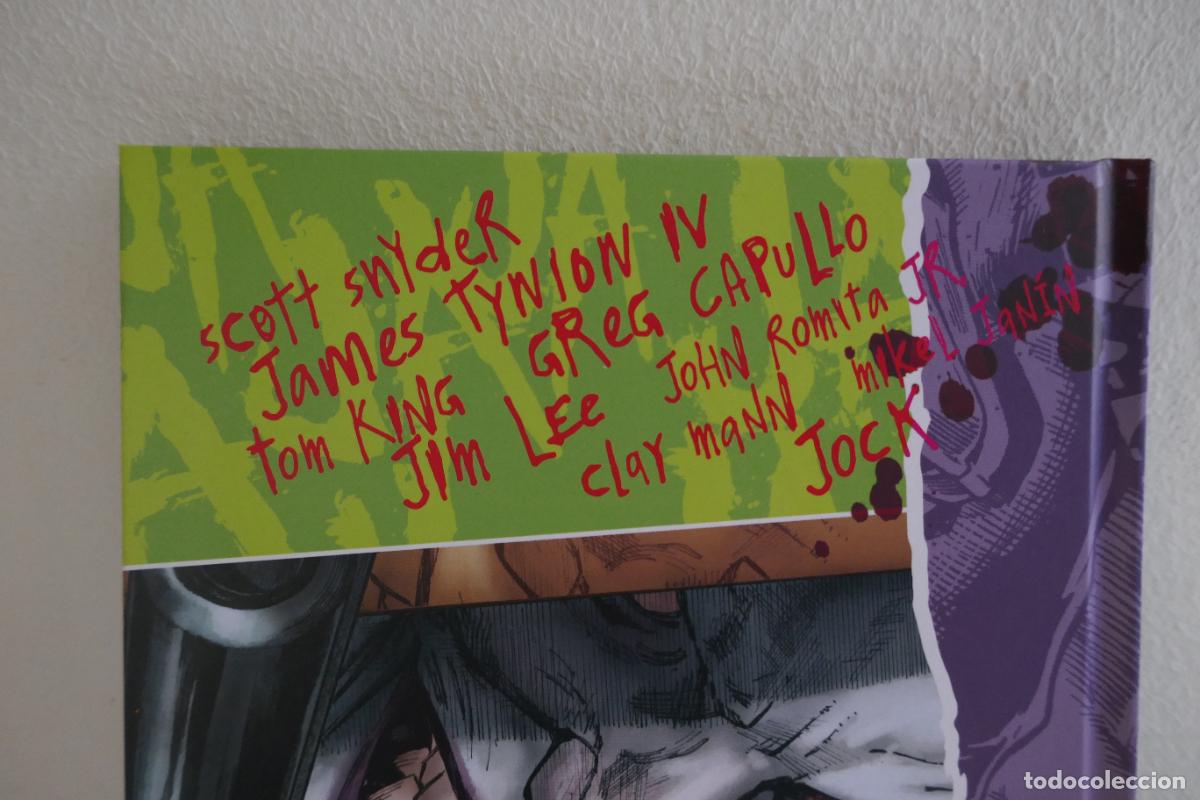 scott snyder
James TYNION IV
tom KING GREG CAPULLO
JIM LEE JOHN ROMITA JR
clay mann mikel JANÍN
JOCK
todocoleccion